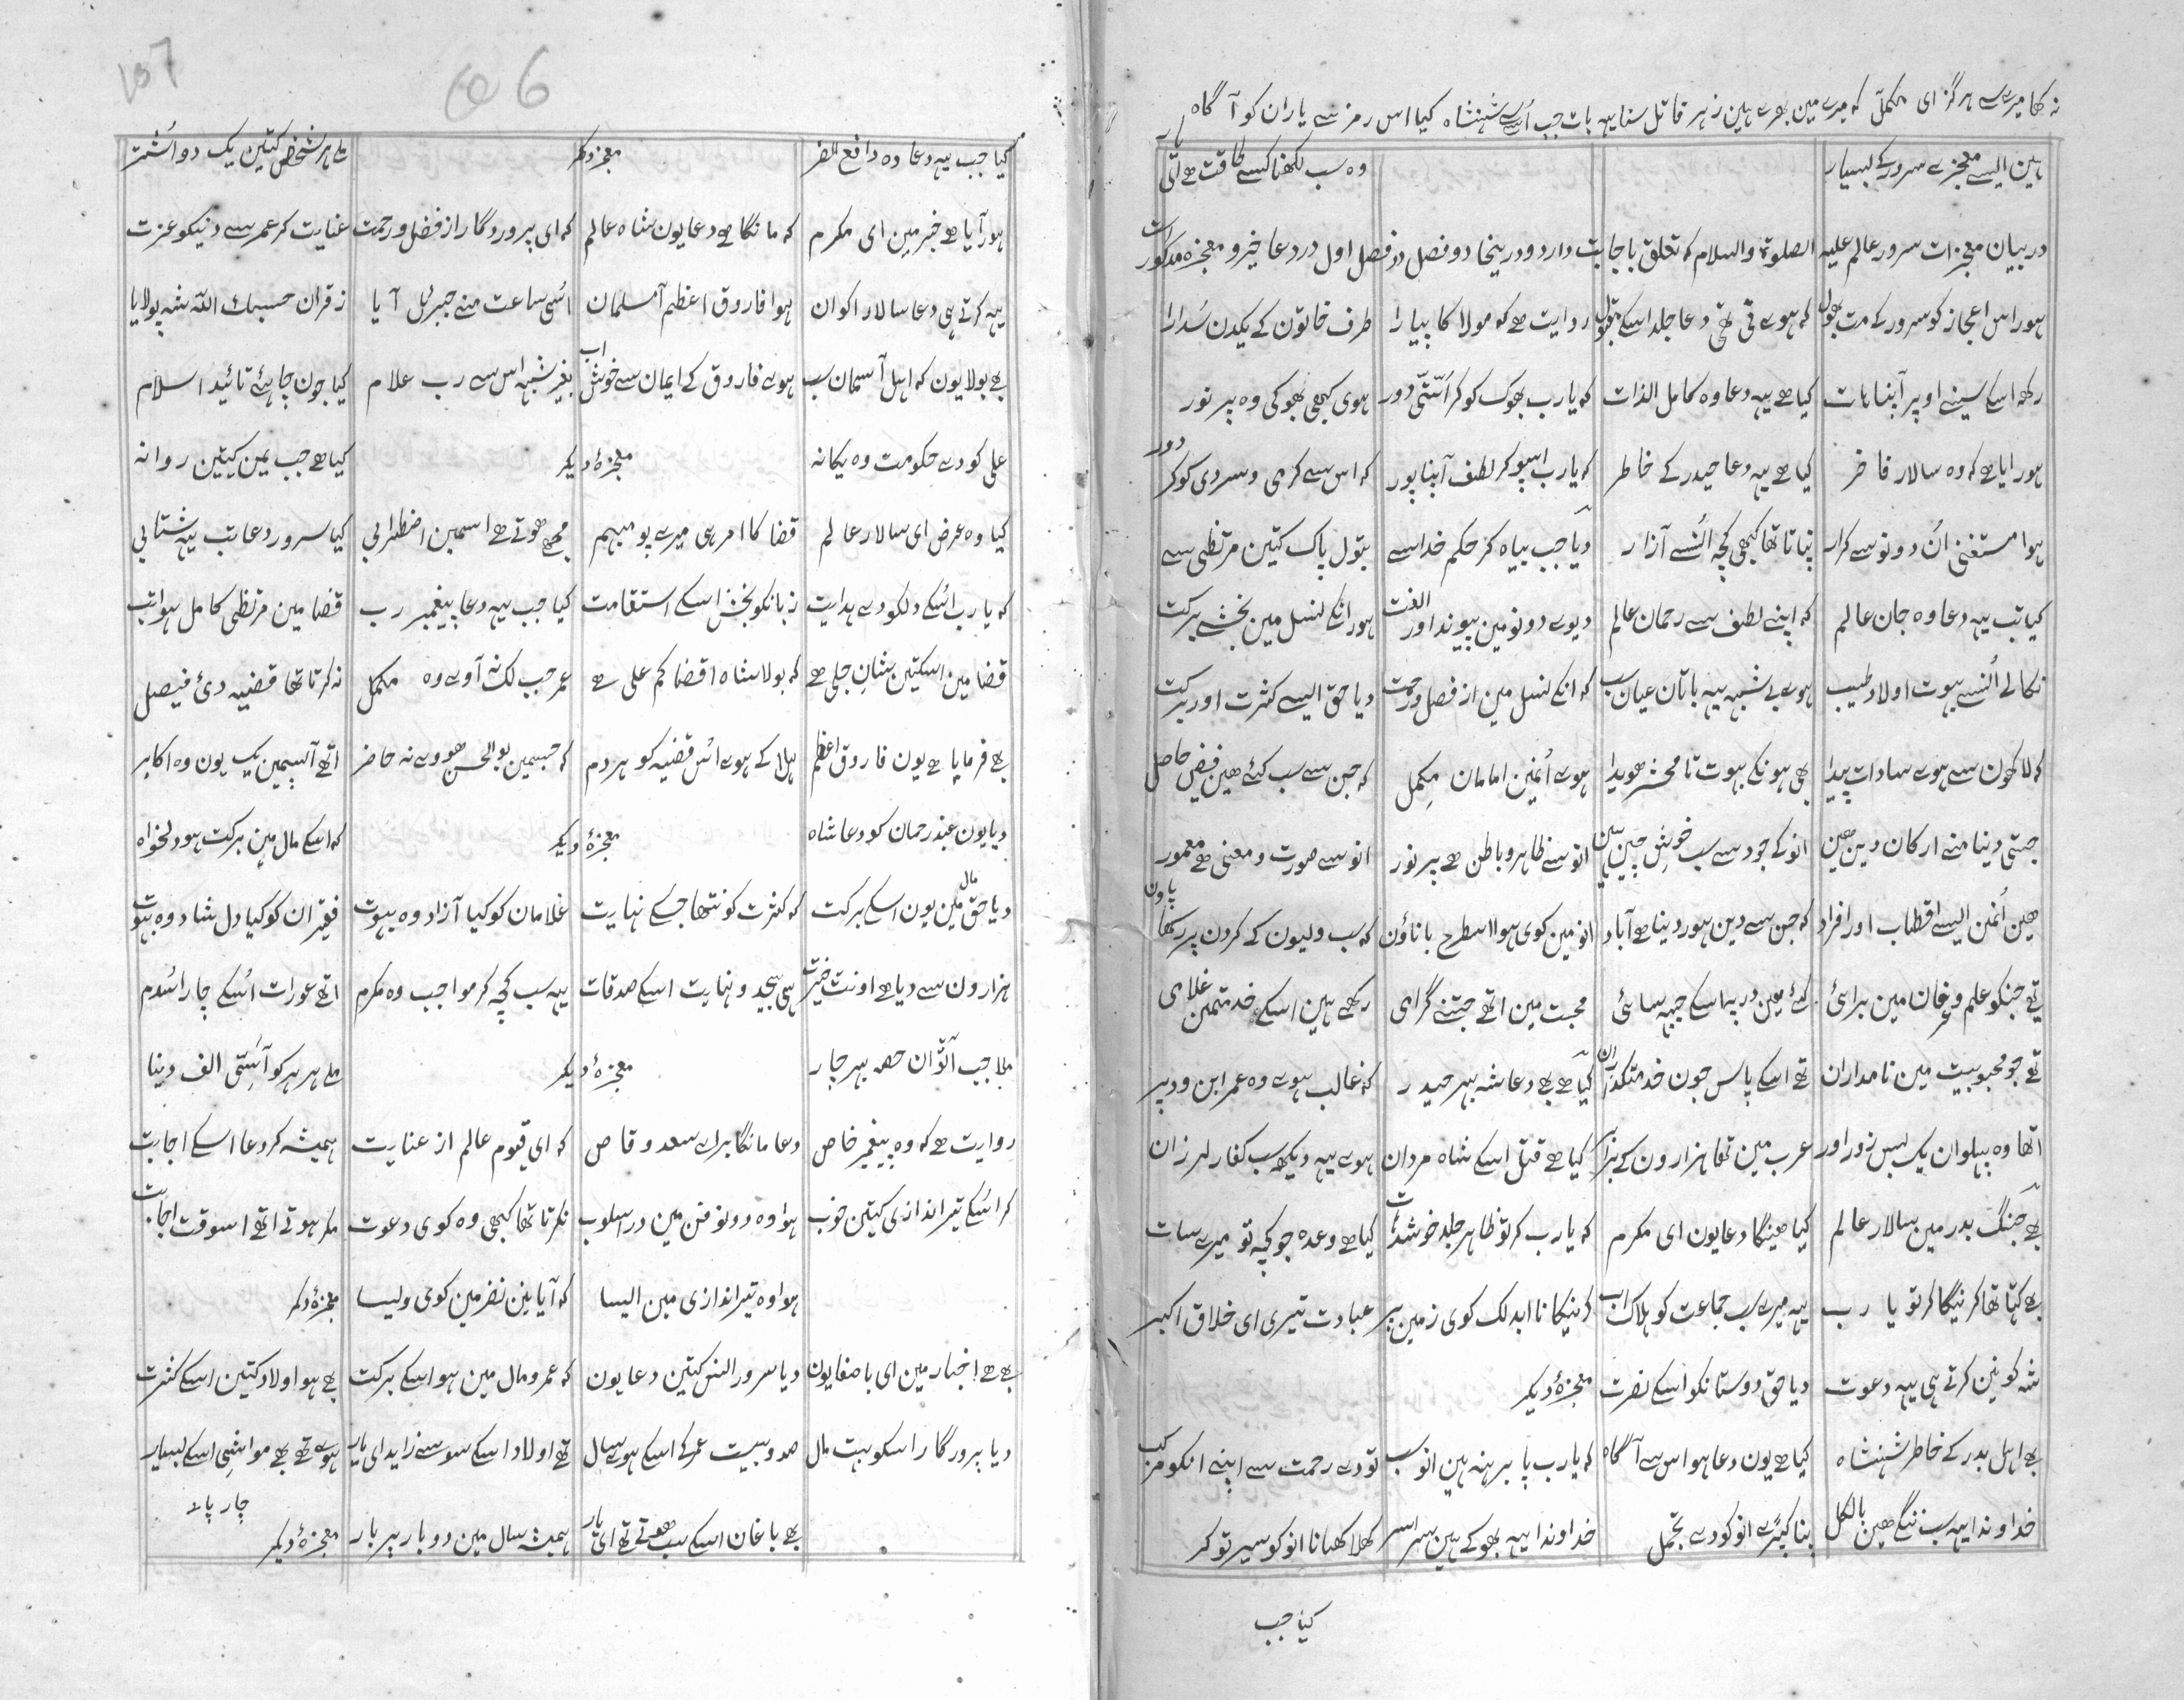 نہ کھا میرے سے ہرگز ای مکمل کہ میرے مین بھرے ہین زہر قاتل سنا یہہ بات جب اُس سے شہنشاہ کیا اس رمز سے یاران کو آگاہ
ہین ایسے معجزے سرور کے بسیار وہ سب لکھنا کسے طاقت ہے ای یار
در بیان معجزات سرور عالم علیہ الصلوۃ والسلام کہ تعلق باجابت دارد و درینجا دو فصل در فصل اول در دعا خیر و معجزہ مذکورات
ہور اس اعجاز کو سرور کے مت بھول کہ ہوے تی تھی دعا جلد اسکے مقبول روایت ہے کہ مولا کا پیارا طرف خاتون کے یکدن سُدارا
رکھہ اسکے سینے اوپر آپنا ہات کیا ہے یہہ دعا وہ کامل الذات کہ یارب بھوک کو کر اُستی دور ہوی کبھی بھوکی وہ پر نور
ہور ایا ہے کہ وہ سالار فاخر کیا ہے یہہ دعا حیدر کے خاطر کہ یارب اسپو کر لطف آپنا پور کہ اس سے گرمی و سردی کو کر دور
ہوا مستغنی اُن دونو سے کرار نپاتا تھا کبھی کچہ اُنسے آزار دیا جب بیاہ کر حکم خدا سے بتول پاک کتین مرتظی سے
کیا تب یہہ دعا وہ جان عالم کہ اپنے لطف سے رحمان عالم دیوے دونو مین پیوند اور الفت ہور انکے نسل مین بخشے برکت
نکالے اُنسے بہوت اولاد طیب ہوے بے شبہہ یہہ باتان عیان سب کہ انکے نسل مین از فصل و رحمت دیا حق ایسے کثرت اور برکت
کہ لاکھون سے ہوے سادات پیدا بھی ہونگے بہوت تا محشر ہویدا ہوے اُنمین امامان مکمل کہ جن سے سب کئے ہین فیض حاصل
جتی دنیا منے ارکان دین ہین انو کے جود سے سب خوش چین ہین انو سے ظاہر و باطن ہے پر نور انو سے صورت و معنی ہے معمور
ہین اُنمن ایسے اقطاب اور افراد کہ جن سے دین ہور دنیا ہے آباد انو مین کوی ہوا اسطرح با ناؤن کہ سب ولیون کے گردن پر رکھا پاون
تھے جنکو علم و عرفان مین برائی کئے ہین در پہ اسکے جبہہ سائی محبت مین اتھے جتنے گرامی رکھے ہین اسکے خدمتمین غلامی
تھے جو محبوبیت مین نامداران تھے اسکے پاس جون خدمتگذاران کیا ہے بھے دعا شہ بہر حیدر کہ غالب ہوے وہ عمر ابن ود پر
اتھا وہ پہلوان یک بس زور اور عرب مین تھا ہزارون کے برابر کیا ہے قتل اسکے شاہ مردان ہوے یہہ دیکھہ سب کفار لرزان
بھے جنگ بدر مین سالار عالم کیا ہینگا دعا یون ای مکرم کہ یارب کر تو ظاہر جلد خوشدات کیا ہے وعدہ جو کچہ تو میرے سات
بھے کہتا تھا کر نیگا کر تو یا رب یہہ میرے سب جماعت کو ہلاک اب کرنیکا نا ابد لک کوی زمین پر عبادت تیری ای خلاق اکبر
شہ کونین کرتے ہی یہہ دعوت دیا حق دوستانکو اسکے نصرت معجزۂ دیگر
بھے اہل بدر کے خاطر شہنشاہ کیا ہے یون دعا ہو اس سے آگاہ کہ یارب پا برہنہ ہین انو سب تو دے رحمت سے اپنے انکو مرکب
خداوندا یہہ سب ننگے ہین بالکل پنا کپڑے انو کو دے تجمل خداوندا یہہ بھوکے ہین سراسر کھلا کھانا انو کو سیر تو کر
کیا جب
کیا جب یہہ دعا وہ دافع الضر معجزہ دیگر ملے ہر شخص کتین یک دو اُشتر
ہور آیا ہے خبر مین ای مکرم کہ مانگا ہے دعا یون شاہ عالم کہ ای پروردگار از فضل و رحمت عنایت کر عمر سے دینکو عزت
یہہ کرتے ہی دعا سالار اکوان ہوا فاروق اعظم آ مسلمان اُسی ساعت منے جبرئل آیا ز قران حسبک اللہ شہ پو لایا
بھے بولا یون کہ اہل آسمان سب ہوے فاروق کے ایمان سے خوش اب بغیر شبہہ اس سے رب علام کیا جون چاہئے تائید اسلام
علی کو دے حکومت وہ یگانہ معجزۂ دیگر کیا ہے جب یمن کیتین روانہ
کیا وہ عرض ای سالار عالم قضا کا امر ہی میرے پو مبہم مجھے ہوتے ہے اسمین اضطرابی کیا سرور دعا تب یہہ شتابی
کہ یارب اُسکے دلکو دے ہدایت زبانکو بخش اسکے استقامت کیا جب یہہ دعا پیغمبر رب قضا مین مرتظی کامل ہوا تب
قضا مین اسکتین شان جلی ہے کہ بولا شاہ اقضا کم علی ہے عمر جب لک نہ آوے وہ مکمل نہ کرتا تھا قضیہ دی فیصل
بھے فرمایا ہے یون فاروق اعظم بلا کے ہوے اس قضیہ کو ہردم کہ جسمین بوالحسن ہووے نہ حاضر اتھے آپسمین یک یون وہ اکابر
دیا یون عبدرحمان کو دعا شاہ معجزۂ دیگر کہ اسکے مال مین برکت ہو دلخواہ
دیا حق مال مین یون اسکے برکت کہ کثرت کو نتھا جسکے نہایت غلامان کو کیا آزاد وہ بہوت فقیران کو کیا دل شاد وہ بہوت
ہزارون سے دیا ہے اونت خیرت ہی بیحد و نہایت اسکے صدقات یہہ سب کچہ کر موا جب وہ مکرم اتھے عورات اُسکے چار اُسدم
ملا جب آٹوان حصہ بہر چار معجزۂ دیگر ملے ہر ہر کو آسّتی الف دینا
روایت ہے کہ وہ پیغمبر خاص دعا مانگا برائے سعد وقاص کہ ای قیوم عالم از عنایت ہمیشہ کر دعا اسکے اجابت
کر اُسکے تیر اندازی کیتین خوب ہوا وہ دونو فن مین در اسلوب نکرتا تھا کبھی وہ کوی دعوت مگر ہوتے اتھے اسوقت اجابت
ہوا وہ تیراندازی مین ایسا کہ آیا نین نضر مین کوی ویسا معجزۂ دیگر
بھے ہے اخبار مین ای باصفا یون دیا سرور انس کیتین دعا یون کہ عمر و مال مین ہو اسکے برکت بھے ہو اولاد کتین اسکے کثرت
دیا پرورگار اسکو بہت مال صد و بیست عمر کے اسکے ہوے سال تھے اولاد اسکے سو سے زاید ای یار ہوے تھے بھے مواشی اسکے بسیار
چار پاے
بھے باغان اسکے سب ہوتے تھے ای یار ہمیشہ سال مین دو بار پر بار معجزۂ دیگر